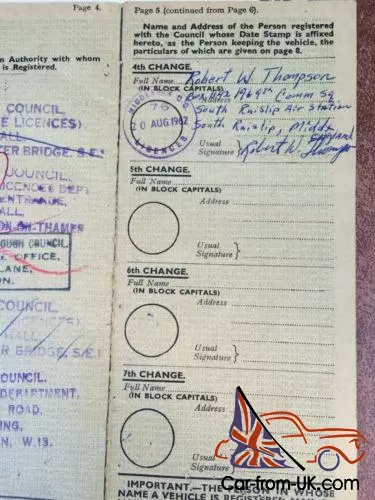 Page 4.
n Authority with whom
is Registered.
COUNCIL,
E LICENCES).
ALL
TER BRIDGE. S.E.1
COUNCIL.
LICENCES DEP)
ENTRANCE,
ALL
ON-ON-THAMES
OUGH COUNCIL,
E OFFICE,
LANE,
ON.
COUNCIL.
LICENCES)
HALL
ER BRIDGE. S.E.1
OUNCIL.
DEPARTMENT.
ROAD.
ING,
N, W.13.
Page 5 (continued from Page 6).
Name and Address of the Person registered
with the Council whose Date Stamp is affixed
hereto, as the Person keeping the vehicle, the
particulars of which are given on page 8.
4th CHANGE.
Full Name Robert W. Thompson
(IN BLOCK CAPITALS)
Address 1969th Comm Sq
South Ruislip Air Station
South Ruislip, Middx
England
Usual
Signature } Robert W. Thompson
MIDDLESEX
20 AUG 1962
LICENCES
5th CHANGE.
Full Name
(IN BLOCK CAPITALS)
Address
Usual
Signature }
6th CHANGE.
Full Name
(IN BLOCK CAPITALS)
Address
Usual
Signature }
7th CHANGE.
Full Name
(IN BLOCK CAPITALS)
Address
Usual
Signature
IMPORTANT.—THE PERSON IN WHOSE
NAME A VEHICLE IS REGISTERED
Car-from-UK.com